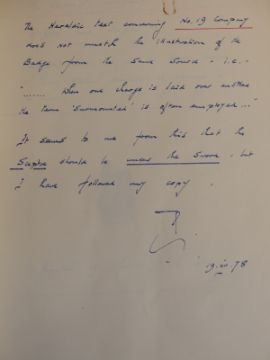 The Heraldic text concerning No. 19 Company
does not match the illustration of the
Badge from the same source - i.e. -
"....... When one charge is laid over another
the term 'Surmounted' is often employed ..."
It seems to me from this that the
Sceptre should be under the Sword - but
I have followed my copy.
19. iii. 78